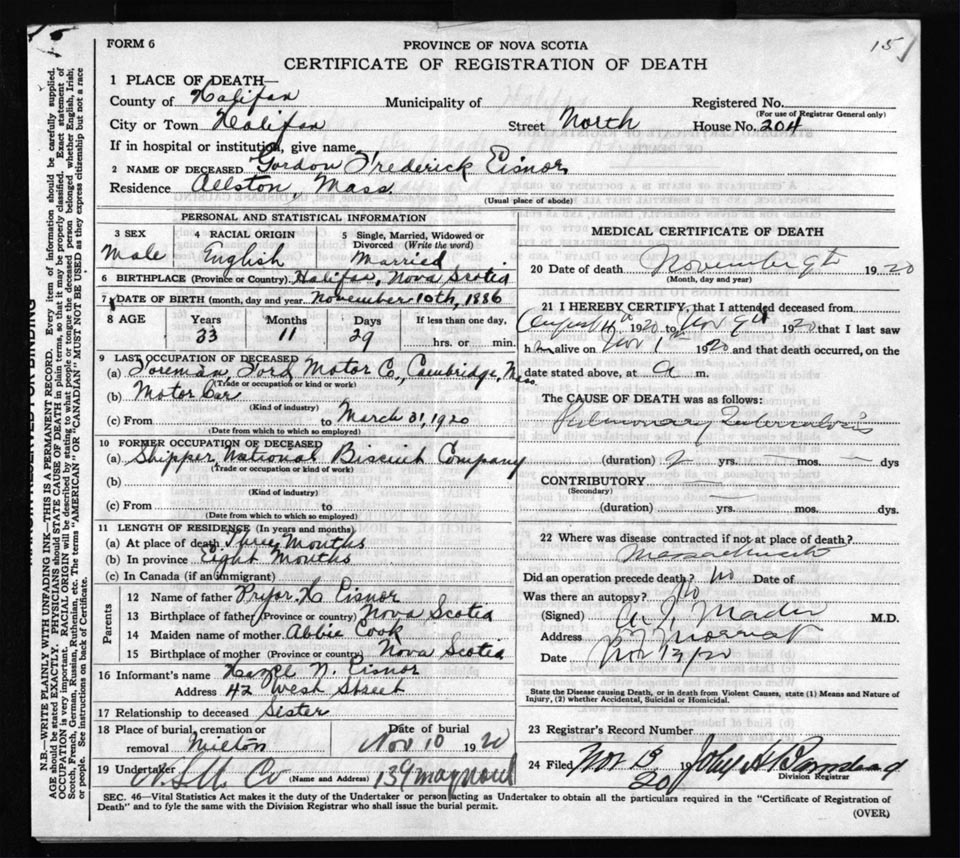 15
FORM 6
PROVINCE OF NOVA SCOTIA
CERTIFICATE OF REGISTRATION OF DEATH
1 PLACE OF DEATH—
County of Halifax Municipality of Registered No.
(For use of Registrar General only)
City or Town Halifax Street North House No. 204
If in hospital or institution, give name
2 NAME OF DECEASED Gordon Frederick Eisnor
Residence Allston, Mass
(Usual place of abode)
PERSONAL AND STATISTICAL INFORMATION
3 SEX 4 RACIAL ORIGIN 5 Single, Married, Widowed or Divorced (Write the word)
Male English Married
6 BIRTHPLACE (Province or Country) Halifax, Nova Scotia
7 DATE OF BIRTH (month, day and year) November 10th, 1886
8 AGE Years Months Days If less than one day,
33 11 29 hrs. or min.
9 LAST OCCUPATION OF DECEASED
(a) Foreman, Ford Motor Co., Cambridge, Mass
(Trade or occupation or kind of work)
(b) Motor Car
(Kind of industry)
(c) From to March 31, 1920
(Date from which to which so employed)
10 FORMER OCCUPATION OF DECEASED
(a) Shipper, National Biscuit Company
(Trade or occupation or kind of work)
(b)
(Kind of industry)
(c) From to
(Date from which to which so employed)
11 LENGTH OF RESIDENCE (In years and months)
(a) At place of death Three Months
(b) In province Eight Months
(c) In Canada (if an immigrant)
Parents
12 Name of father Pryor. H Eisnor
13 Birthplace of father (Province or country) Nova Scotia
14 Maiden name of mother Abbie Cook
15 Birthplace of mother (Province or country) Nova Scotia
16 Informant's name Hazel N. Eisnor
Address 42 West Street
17 Relationship to deceased Sister
18 Place of burial, cremation or removal Milton Date of burial Nov 10 1920
19 Undertaker Co (Name and Address) 139 Maynard
MEDICAL CERTIFICATE OF DEATH
20 Date of death November 9th 1920
(Month, day and year)
21 I HEREBY CERTIFY, that I attended deceased from
August 1920 to Nov 9th 1920 that I last saw
him alive on Nov 1st 1920 and that death occurred, on the
date stated above, at a m.
THE CAUSE OF DEATH was as follows:
Pulmonary Tuberculosis
(duration) 2 yrs. — mos. — dys
CONTRIBUTORY —
(Secondary)
(duration) yrs. mos. dys
22 Where was disease contracted if not at place of death?
Massachusetts
Did an operation precede death? No Date of
Was there an autopsy? No
(Signed) Mader M.D.
Address
Date Nov 12/20
State the Disease causing Death, or in death from Violent Causes, state (1) Means and Nature of
Injury, (2) whether Accidental, Suicidal or Homicidal.
23 Registrar's Record Number
24 Filed Nov 13 1920 John H Barnstead
Division Registrar
SEC. 46—Vital Statistics Act makes it the duty of the Undertaker or person acting as Undertaker to obtain all the particulars required in the "Certificate of Registration of
Death" and to fyle the same with the Division Registrar who shall issue the burial permit.
(OVER)
MARGIN RESERVED FOR BINDING
N.B.—WRITE PLAINLY WITH UNFADING INK—THIS IS A PERMANENT RECORD. Every item of information should be carefully supplied.
AGE should be stated EXACTLY. PHYSICIANS should STATE CAUSE OF DEATH in plain terms, so that it may be properly classified. Exact statement of
OCCUPATION is very important. RACIAL ORIGIN will be described by stating to what people or tongue the deceased person belonged whether English, Irish,
Scotch, French, German, Russian, Ruthenian, etc. The terms "AMERICAN" OR "CANADIAN" MUST NOT BE USED as they express citizenship but not a race
or people. See instructions on back of Certificate.